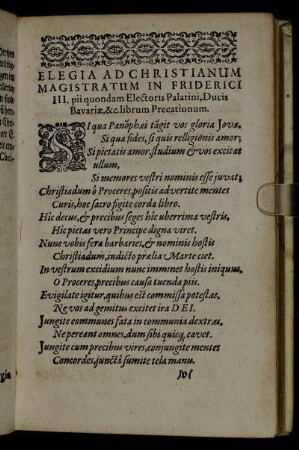 ELEGIA AD CHRISTIANUM
MAGISTRATUM IN FRIDERICI
III. pii quondam Electoris Palatini, Ducis
Bavariæ, &c. librum Precationum.
SI qua Panõphæi tãgit vos gloria Jovæ,
Si qua fides, si quis relligionis amor;
Si pietatis amor, studium & vos excitat
ullum,
Si memores vestri nominis esse juvat;
Christiadum ô Proceres, positis advertite mentes
Curis, hoc sacro figite corda libro.
Hic decus, & precibus seges hic uberrima vestris,
Hic pietas vero Principe digna viret.
Nunc vobis fera barbaries, & nominis hostis
Christiadum, indicto prælia Marte ciet.
In vestrum excidium nunc imminet hostis iniquus,
O Proceres, precibus causa tuenda piis.
Evigilate igitur, quibus est commissa potestas,
Ne vos ad gemitus excitet ira DEI.
Jungite communes fata in communia dextras,
Ne pereant omnes, dum sibi quisq; cavet.
Jungite cum precibus vires, conjungite mentes
Concordes, junctâ sumite tela manu.